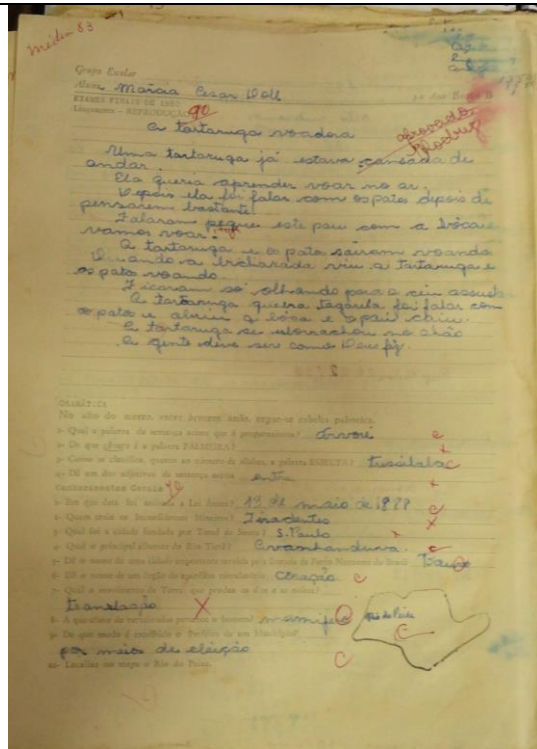 média 83
Grupo Escolar
Aluna Marcia Cesar Doll 3º Ano B
EXAMES FINAIS DE 196
Linguagem - REPRODUÇÃO 90
aprovada
A tartaruga voadora
Uma tartaruga já estava cansada de
andar.
Ela queria aprender voar no ar.
Depois ela foi falar com os patos depois de
pensarem bastante.
Falaram pegue este pau com a bôca e
vamos voar.
A tartaruga e os patos sairam voando
Quando a bicharada viu a tartaruga e
os pato voando.
Ficaram só olhando para o ceu
A tartaruga foi falar com
os pato e abriu a bôca e caiu.
A tartaruga se esborrachou no chão
A gente deve ser como Deus fiz.
GRAMÁTICA
No alto do morro, entre árvores anãs, ergue-se esbelta palmeira.
1- Qual a palavra da sentença acima que é proparoxítona? árvore
2- De que gênero é a palavra PALMEIRA?
3- Como se classifica, quanto ao número de sílabas, a palavra ESBELTA? trissílaba
4- Dê um dos adjetivos da sentença acima entre
Conhecimentos Gerais
1- Em que data foi assinada a Lei Áurea? 13 de maio de 1888
2- Quem Tiradentes
3- Qual foi a cidade fundada por S. Paulo
4- Qual o principal afluente do Rio Tietê? Avanhandava
5- Dê o nome de uma cidade importante servida pela Estrada de Ferro Noroeste do Brasil Bauru
6- Dê o nome de um órgão do aparelho circulatório Coração
7- Qual o movimento da Terra que produz os dias e as noites?
translação
8- A que classe de vertebrados pertence o homem? mamifero
9- De que modo é escolhido o Prefeito de um Município?
por meio de eleição
10- Localize no mapa o Rio do Peixe.
Rio do Peixe